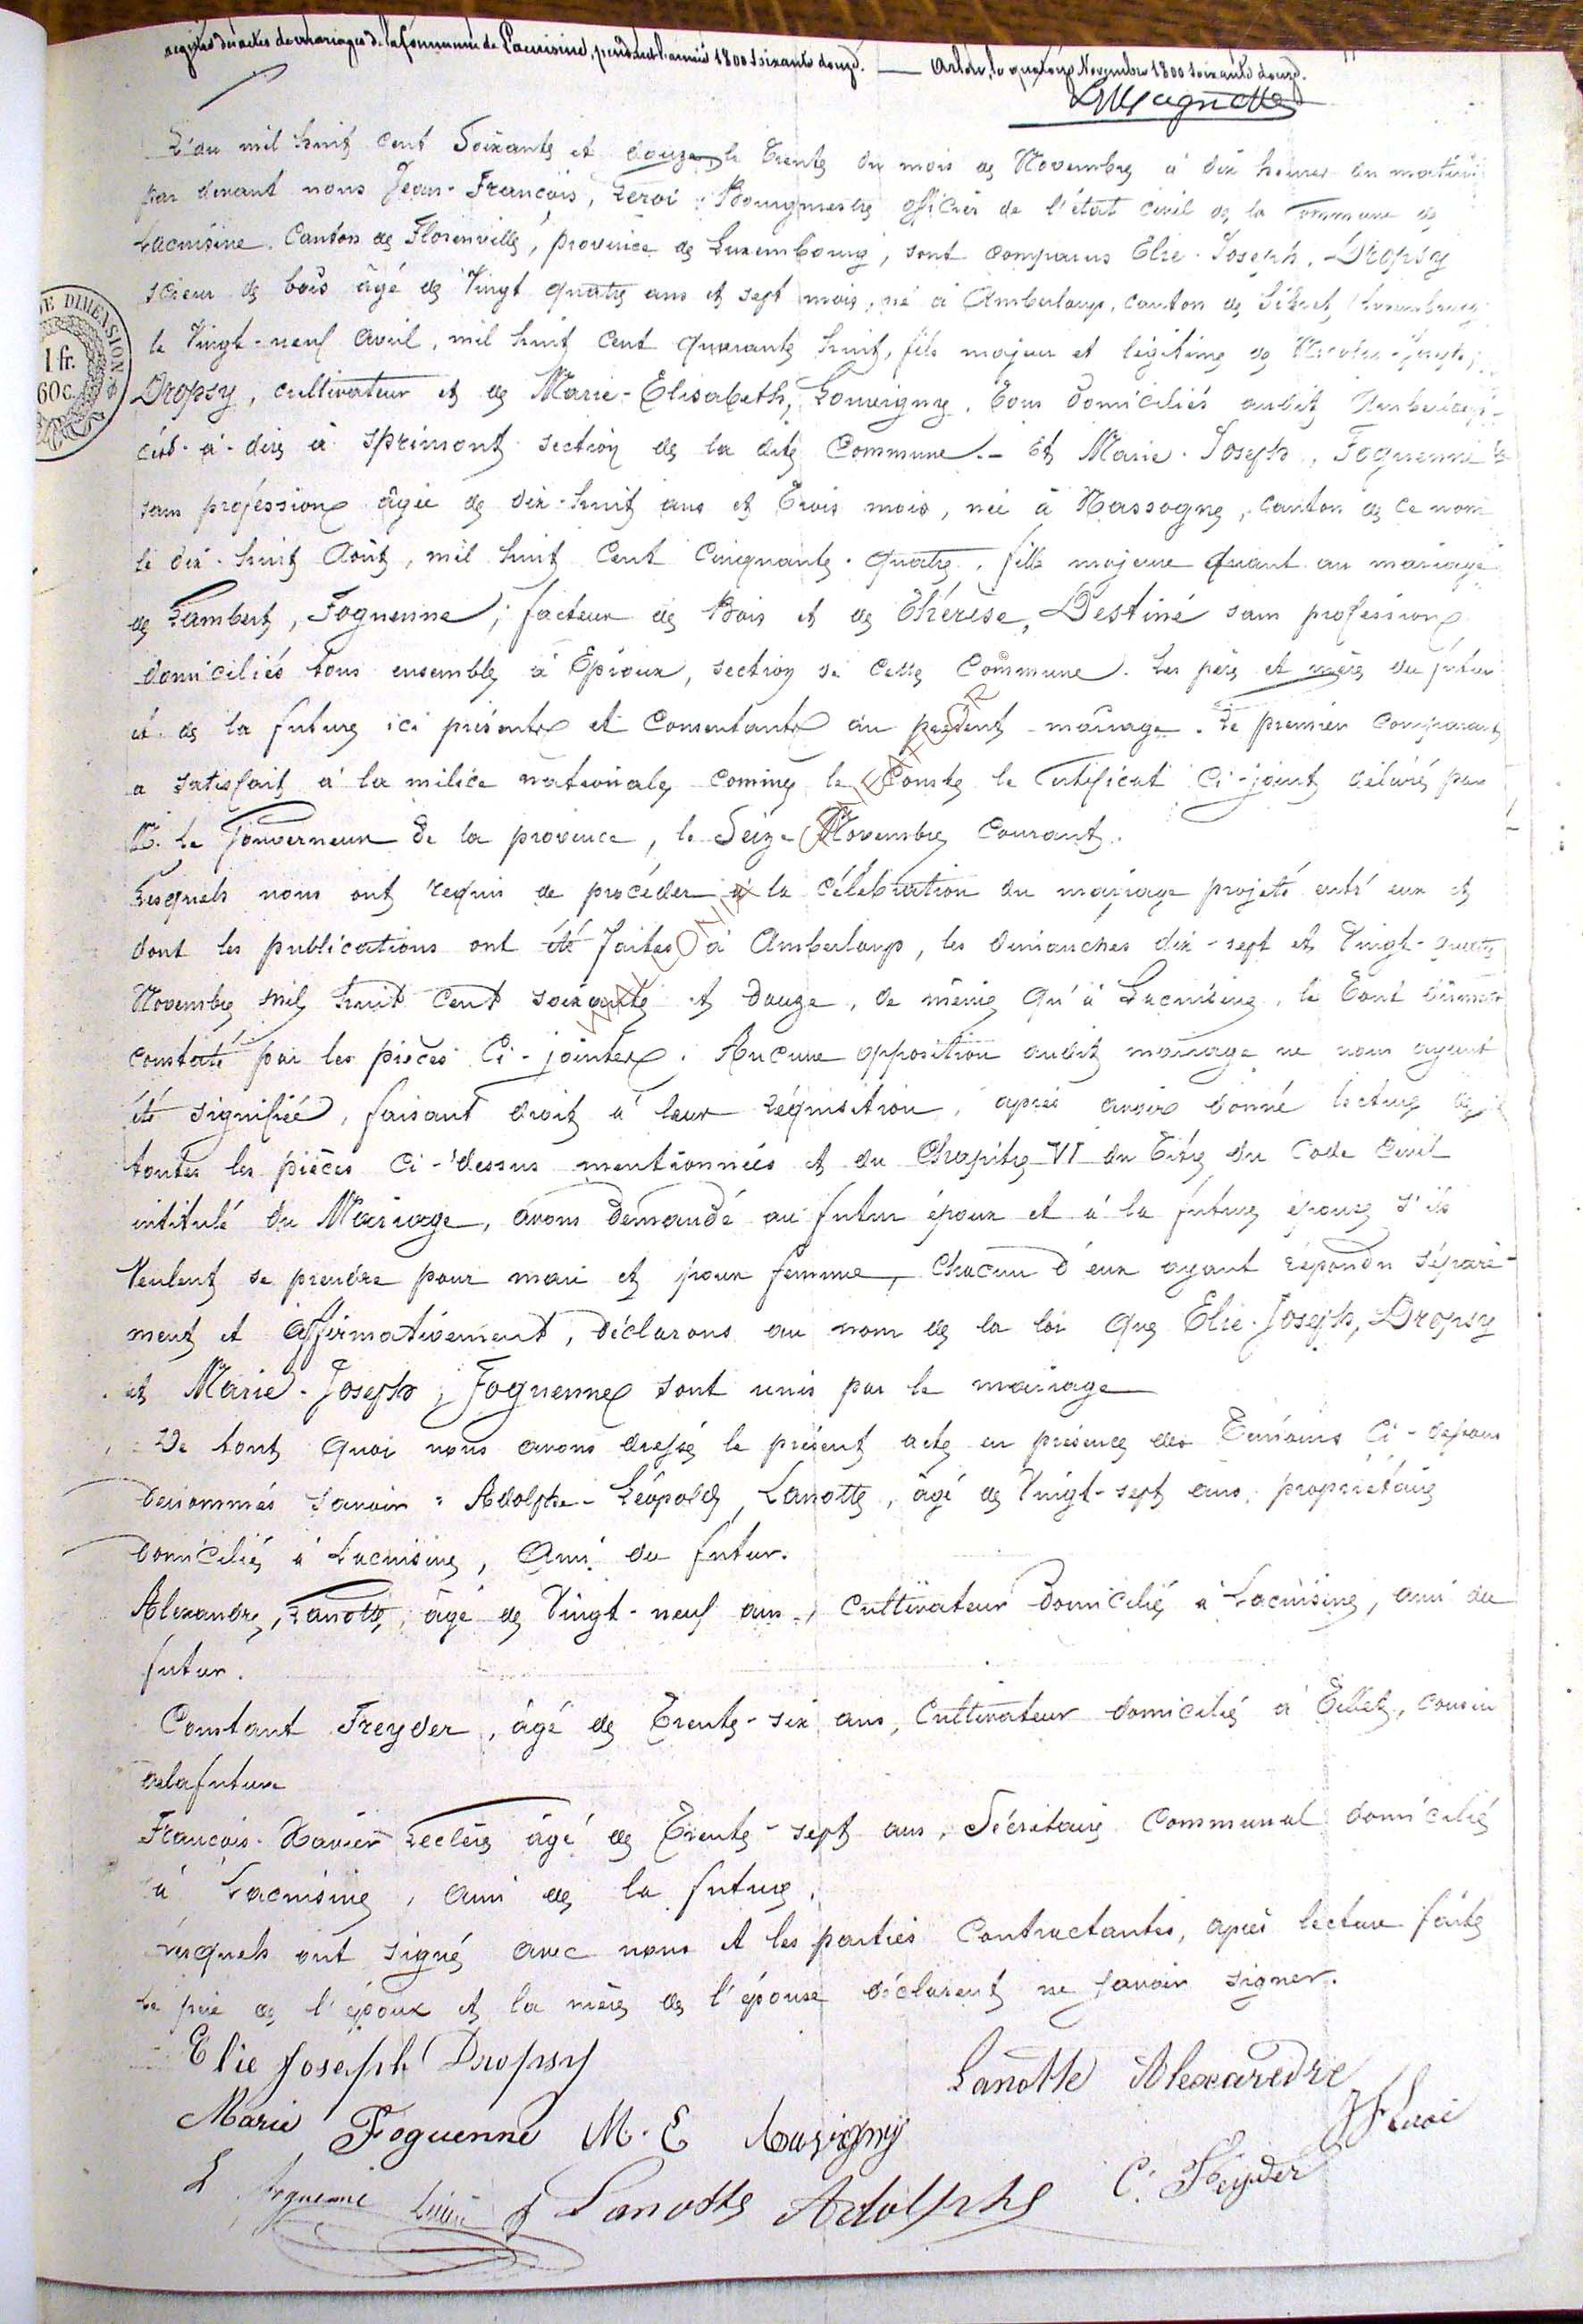 registre des actes de mariages de la Commune de Lacuisine, pendant l'année 1800 soixante douze. — Arlon, le quatorze Novembre 1800 soixante douze.
L'an mil huit cent Soixante et douze le Trente du mois de Novembre à dix heures du matin
par devant nous Jean-François, Leroi, Bourgmestre officier de l'état civil de la Commune de
Lacuisine. Canton de Florenville, province de Luxembourg, sont comparus Elie-Joseph, Dropsy
scieur de bois âgé de Vingt quatre ans et sept mois, né à Amberloup, canton de Sibret, Luxembourg
DE DIMENSION
1 fr.
60c.
le Vingt-neuf avril, mil huit cent quarante huit, fils majeur et légitime de Nicolas-Joseph,
Dropsy, cultivateur et de Marie-Elisabeth, Louvigny, tous domiciliés audit Amberloup,
c'est-à-dire à Sprimont section de la dite Commune. - Et Marie-Joseph, Foguenne
sans profession âgée de dix-huit ans et trois mois, née à Nassogne, canton de ce nom
le dix-huit Août, mil huit cent cinquante-quatre, fille majeure quant au mariage
de Lambert, Foguenne, facteur de Bois et de Thérèse, Destiné sans profession
domiciliés tous ensemble à Epioux, section de cette Commune. Les père et mère du futur
et de la future ici présents et Consentants au présent mariage. Le premier Comparant
a satisfait à la milice nationale comme le conste le Certificat ci-joint délivré par
M. le Gouverneur de la province, le Seize Novembre Courant.
Lesquels nous ont requis de procéder à la célébration du mariage projeté entr'eux et
dont les publications ont été faites à Amberloup, les dimanches dix-sept et Vingt-quatre
Novembre mil huit cent soixante et douze, de même qu'à Lacuisine, le tout dûment
constaté par les pièces ci-jointes. Aucune opposition audit mariage ne nous ayant
été signifiée, faisant droit à leur réquisition, après avoir donné lecture de
toutes les pièces ci-dessus mentionnées et du Chapitre VI du titre du Code Civil
intitulé du Mariage, avons demandé au futur époux et à la future épouse s'ils
Veulent se prendre pour mari et pour femme, Chacun d'eux ayant répondu séparé-
ment et affirmativement, déclarons au nom de la loi que Elie-Joseph, Dropsy
et Marie-Joseph, Foguenne sont unis par le mariage
De tout quoi nous avons dressé le présent acte en présence des Témoins Ci-dessous
dénommés savoir: Adolphe-Léopold, Lanotte, âgé de Vingt-sept ans, propriétaire
domicilié à Lacuisine, Ami du futur.
Alexandre, Lanotte, âgé de Vingt-neuf ans, cultivateur domicilié à Lacuisine, ami du
futur.
Constant Freyder, âgé de Trente-six ans, Cultivateur domicilié à Tillet, cousin
de la future
François-Xavier Leclère âgé de Trente-sept ans, Sécrétaire Communal domicilié
à Lacuisine, ami de la future,
lesquels ont signé avec nous et les parties Contractantes, après lecture faite
le père de l'époux et la mère de l'épouse déclarent ne savoir signer.
Elie Joseph Dropsy
Lanotte Alexandre
Marie Foguenne M. E Louvigny
JF Leroi
L Foguenne
Lanotte Adolphe
C. Freyder
© WALLONIA GENEAFLOR